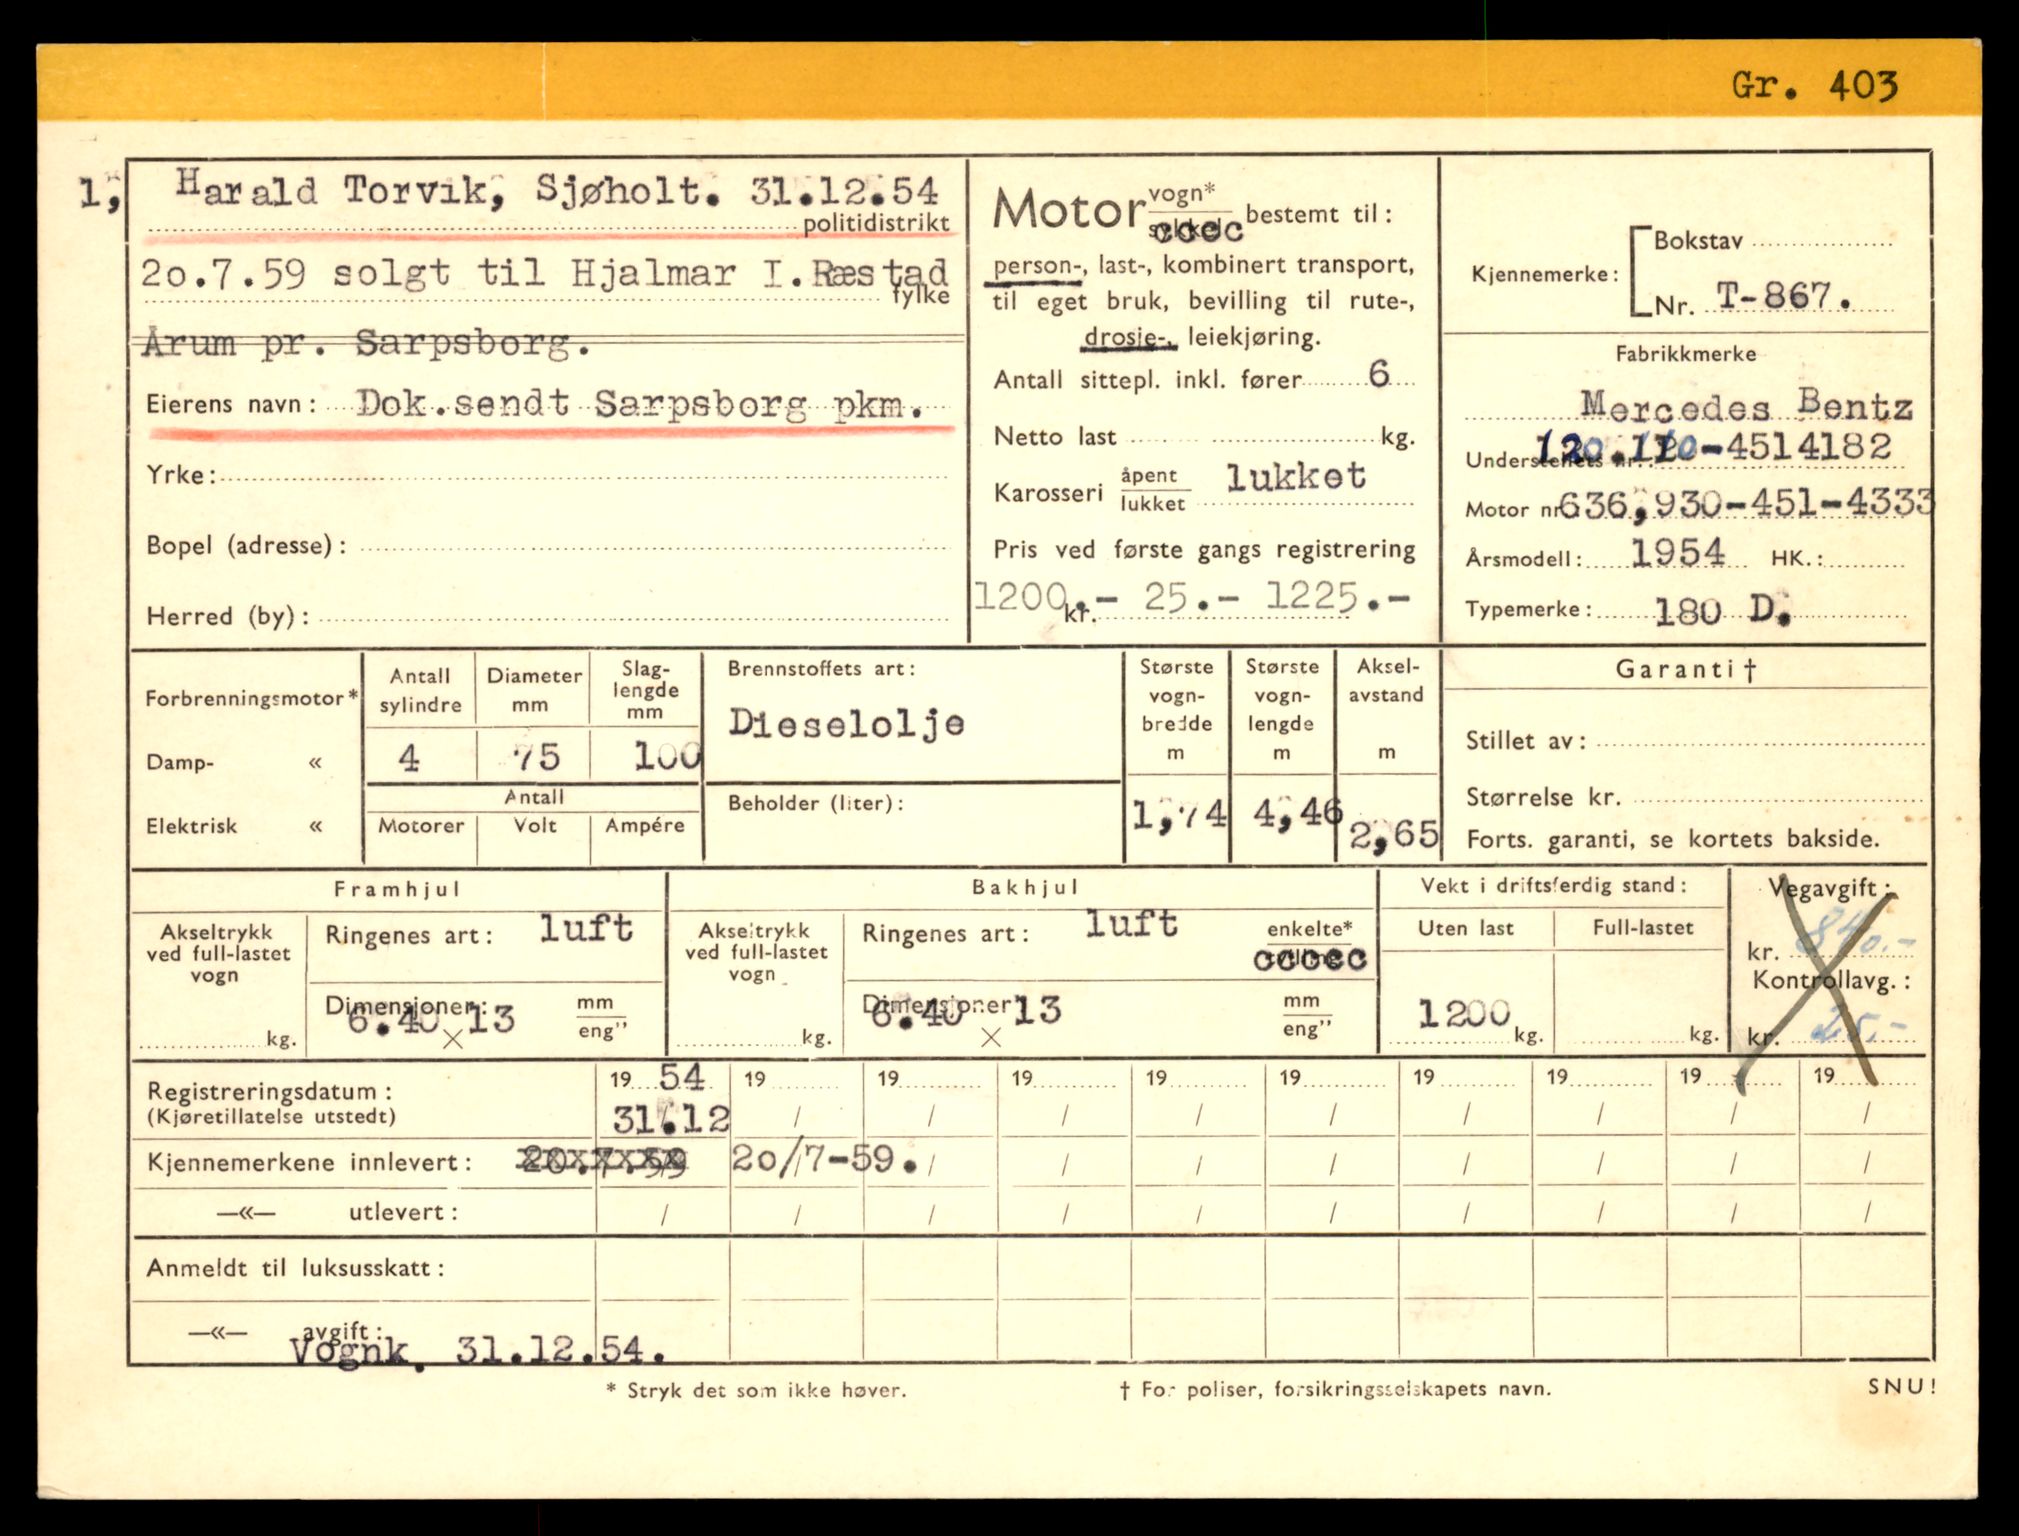 Gr. 403
1, Harald Torvik, Sjøholt. 31.12.54
politidistrikt
20.7.59 solgt til Hjalmar I. Ræstad
fylke
Årum pr. Sarpsborg.
Eierens navn: Dok.sendt Sarpsborg pkm.
Yrke:
Bopel (adresse):
Herred (by):
Motor vogn* bestemt til:
cccc
person-, last-, kombinert transport,
til eget bruk, bevilling til rute-,
drosje-, leiekjøring.
Antall sittepl. inkl. fører 6
Netto last kg.
Karosseri åpent lukket lukket
Pris ved første gangs registrering
1200.- 25.- 1225.-
kr.
Kjennemerke: Bokstav
Nr. T-867.
Fabrikkmerke
Mercedes Bentz
Understellets nr. 120.110-4514182
Motor nr. 636,930-451-4333
Årsmodell: 1954 HK.:
Typemerke: 180 D.
Forbrenningsmotor*
Damp- «
Elektrisk «
Antall sylindre
Diameter mm
Slag-lengde mm
4 75 100
Antall
Motorer Volt Ampére
Brennstoffets art:
Dieselolje
Beholder (liter):
Største vogn-bredde m
Største vogn-lengde m
Aksel-avstand m
1,74 4,46 2,65
Garanti †
Stillet av:
Størrelse kr.
Forts. garanti, se kortets bakside.
Framhjul
Akseltrykk ved full-lastet vogn
kg.
Ringenes art: luft
Dimensjoner: mm
6.40 × 13 eng”
Bakhjul
Akseltrykk ved full-lastet vogn
kg.
Ringenes art: luft enkelte*
ccccc
Dimensjoner: mm
6.40 × 13 eng”
Vekt i driftsferdig stand:
Uten last Full-lastet
1200 kg. kg.
Vegavgift:
kr. 840.-
Kontrollavg.:
kr. 25.-
Registreringsdatum: 19 54 19 19 19 19 19 19 19 19 19
(Kjøretillatelse utstedt) 31.12 / / / / / / / / /
Kjennemerkene innlevert: 20.7.59 20/7-59. / / / / / / / /
—«— utlevert: / / / / / / / / / /
Anmeldt til luksusskatt:
—«— avgift:
Vognk. 31.12.54.
* Stryk det som ikke høver. † For poliser, forsikringsselskapets navn. SNU!